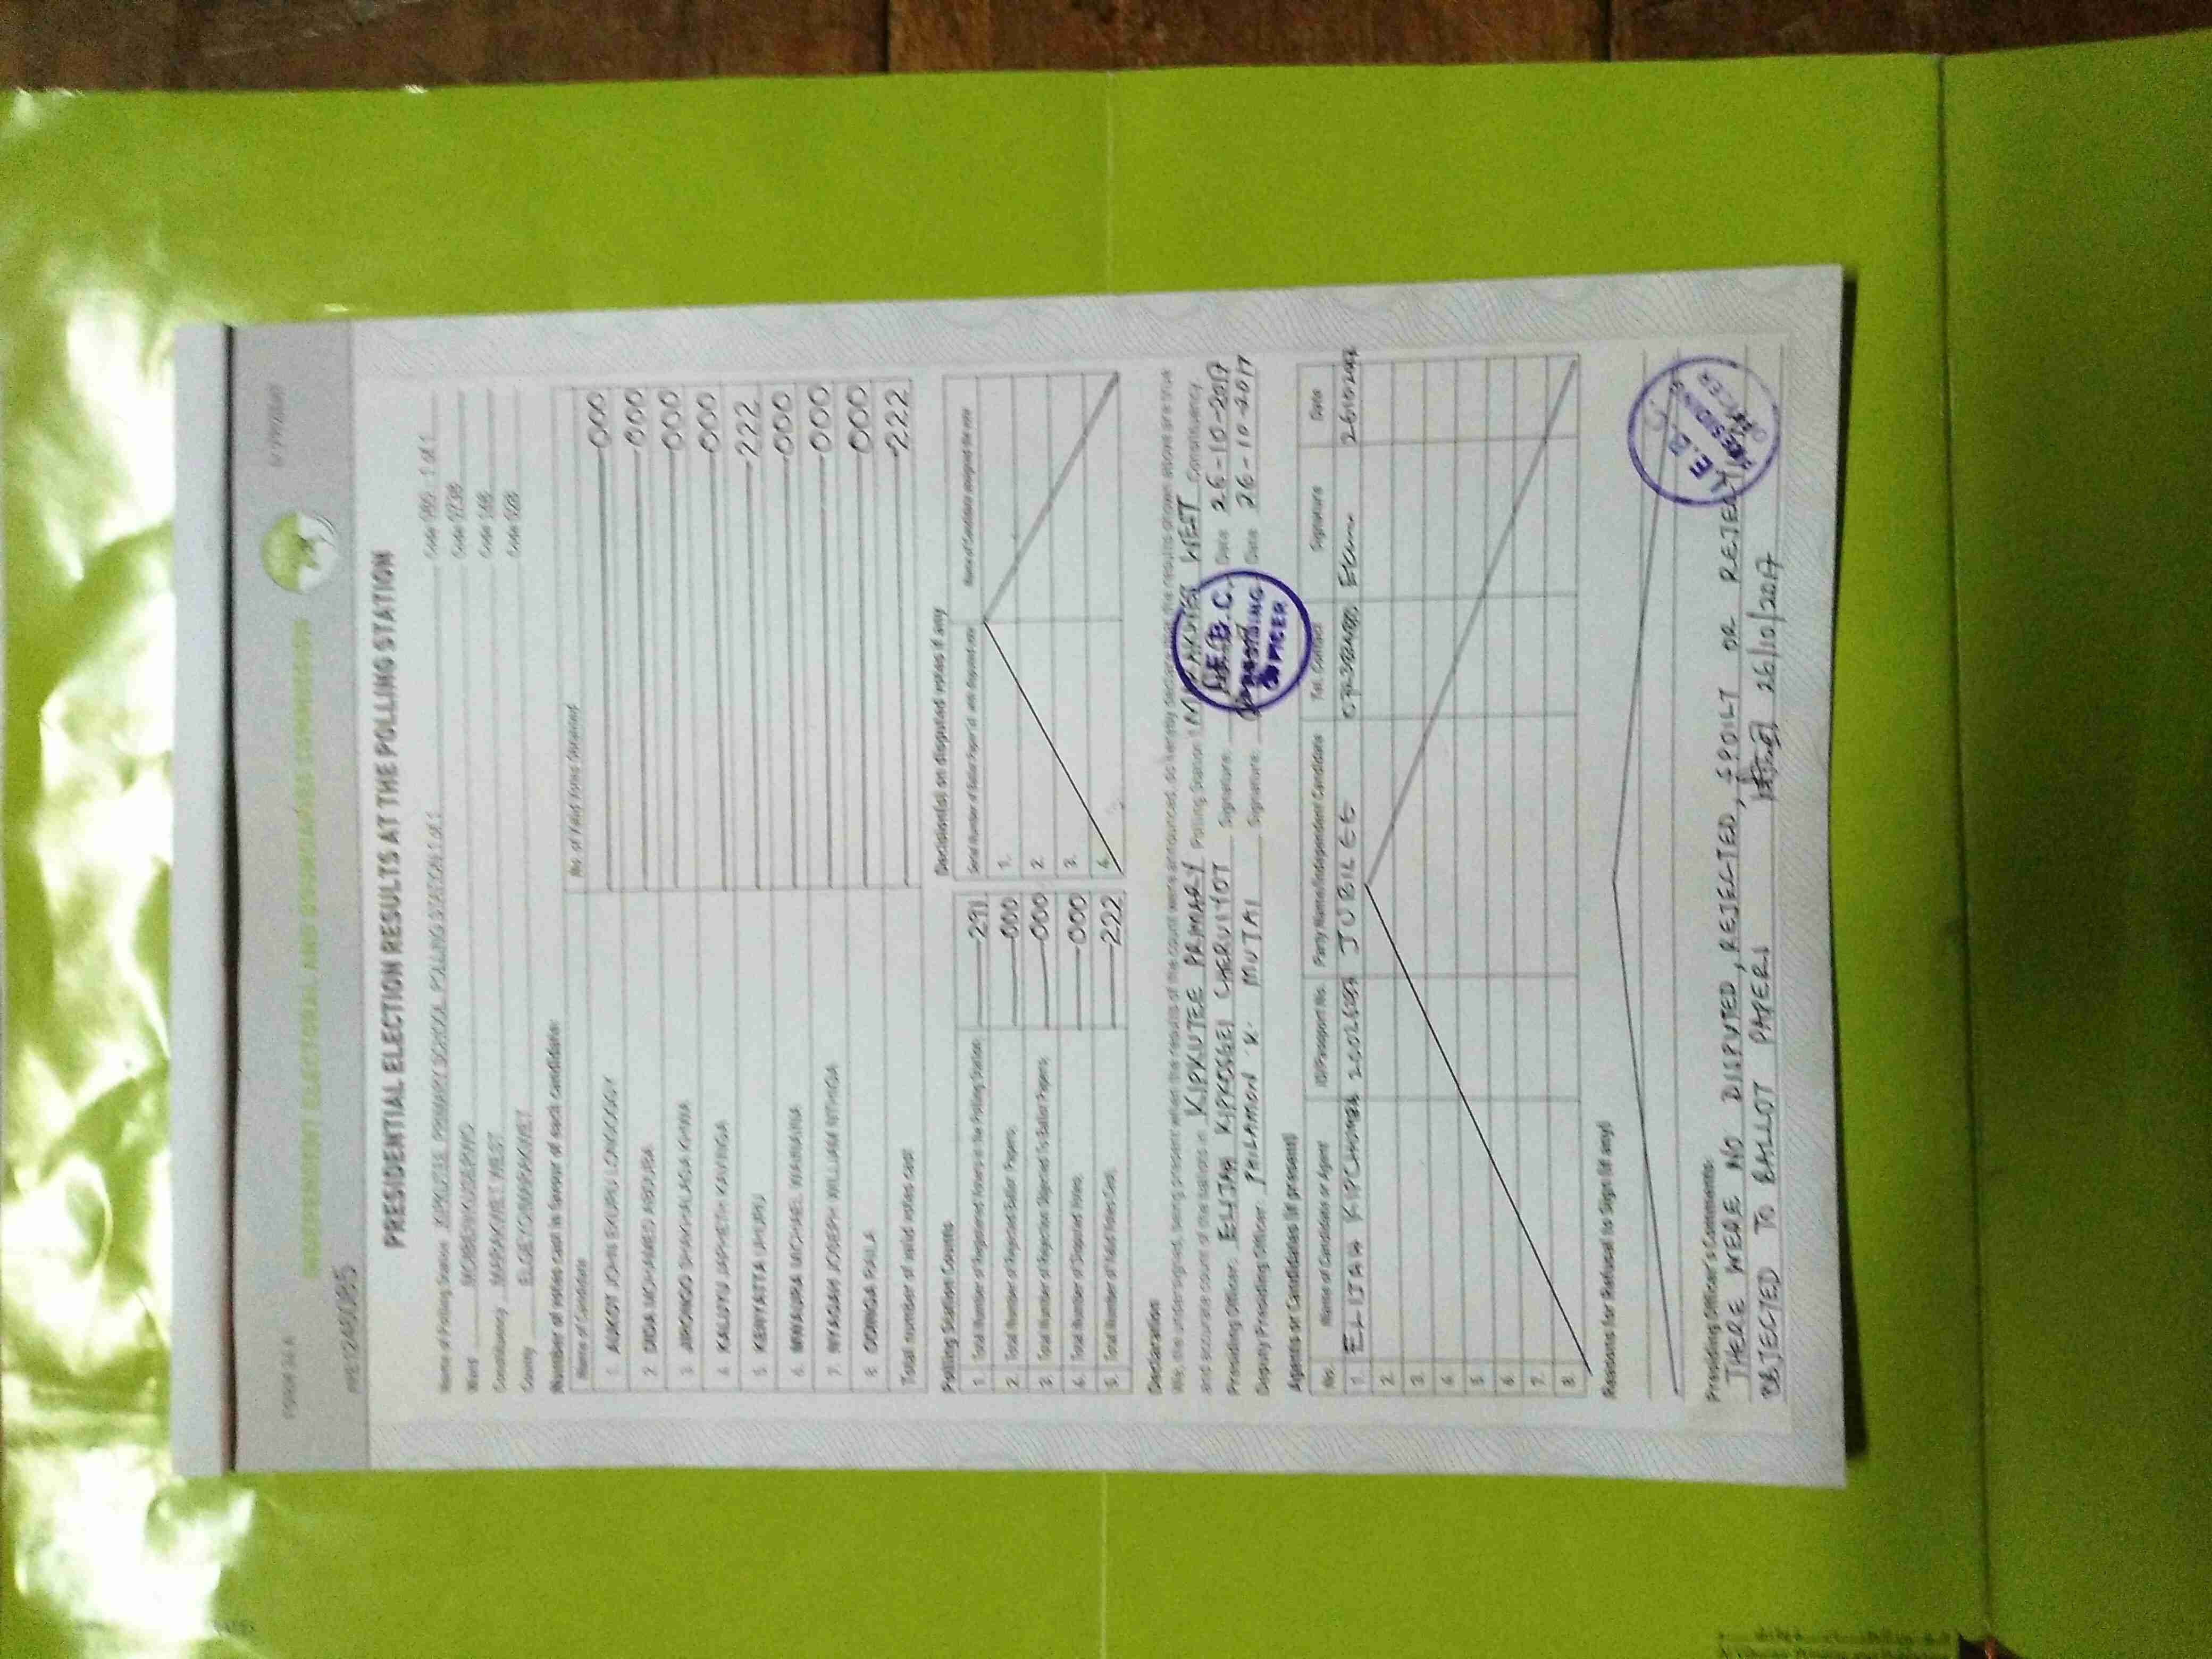 FORM 34 A
INDEPENDENT ELECTORAL AND BOUNDARIES COMMISSION
PRESIDENTIAL ELECTION RESULTS AT THE POLLING STATION
Name of Polling Station KIPKUTEE PRIMARY SCHOOL POLLING STATION 1 of 1 Code 1 of 1
Ward
Constituency MARAKWET WEST Code 148
County ELGEYO/MARAKWET Code 028
Number of votes cast in favour of each candidate:
Name of Candidate No. of Valid Votes Obtained
1. AUKOT JOHN EKURU LONGGOGY 000
2. DIDA MOHAMED ABDUBA 000
3. JIRONGO SHAKHALAGA KHWA 000
4. KALUYU JAPHETH KAVINGA 000
5. KENYATTA UHURU 222
6. MWAURA MICHAEL WAINAINA 000
7. NYAGAH JOSEPH WILLIAM NTHIGA 000
8. ODINGA RAILA 000
Total number of valid votes cast 222
Polling Station Counts
1. Total Number of Registered Voters in the Polling Station 291
2. Total Number of Rejected Ballot Papers 000
3. Total Number of Rejection Objected To Ballot Papers 000
4. Total Number of Disputed Votes 000
5. Total Number of Valid Votes Cast 222
Decision(s) on disputed votes if any
Serial Number of Ballot Paper(s) with disputed vote Name of Candidate assigned the vote
1.
2.
3.
4.
Declaration
We, the undersigned, being present when the results of the count were announced, do hereby declare that the results shown above are true
and accurate count of the ballots in KIPKUTEE PRIMARY Polling Station MARAKWET WEST Constituency.
Presiding Officer ELIJAH KIPKOSGEI CHERUIYOT Signature: Date 26-10-2017
Deputy Presiding Officer PHILAMON K. MUTAI Signature: Date 26-10-2017
I.E.B.C.
PRESIDING
OFFICER
Agents or Candidates (if present)
No. Name of Candidate or Agent ID/Passport No. Party Name/Independent Candidate Tel. Contact Signature Date
1. ELIJAH JUBILEE
2.
3.
4.
5.
6.
7.
8.
Reasons for Refusal to Sign (if any)
I.E.B.C.
PRESIDING
OFFICER
Presiding Officer's Comments:
THERE WERE NO DISPUTED, REJECTED, SPOILT OR
OBJECTED TO BALLOT PAPERS 26/10/2017